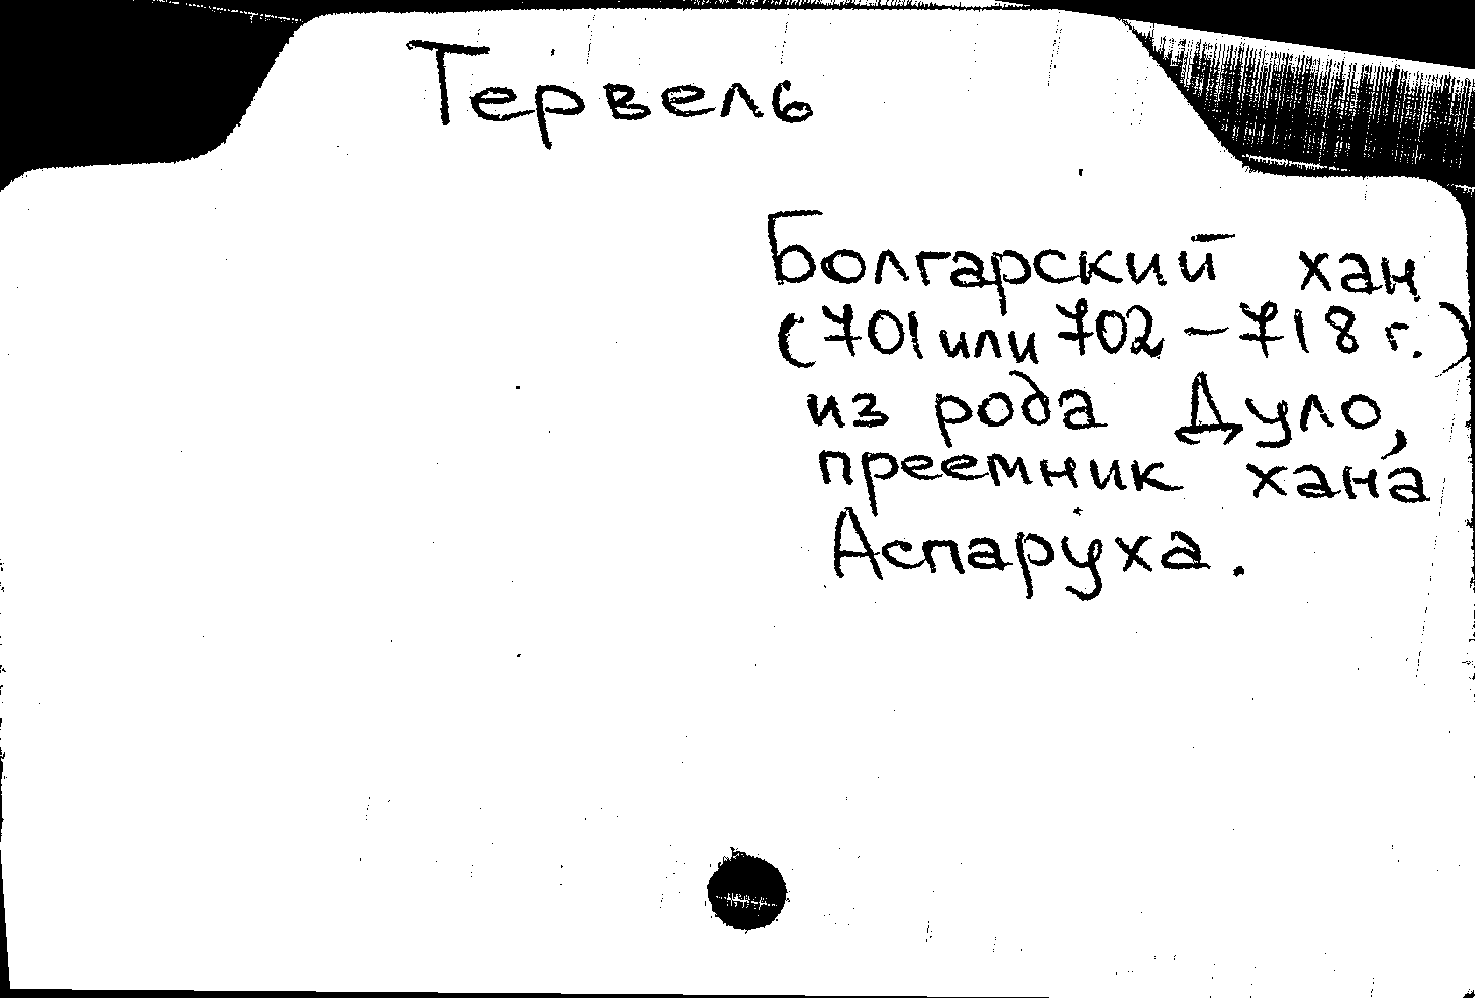 Тервель
Болгарский хан
(701 или 702 – 718 г.)
из рода Дуло,
преемник хана
Аспаруха.